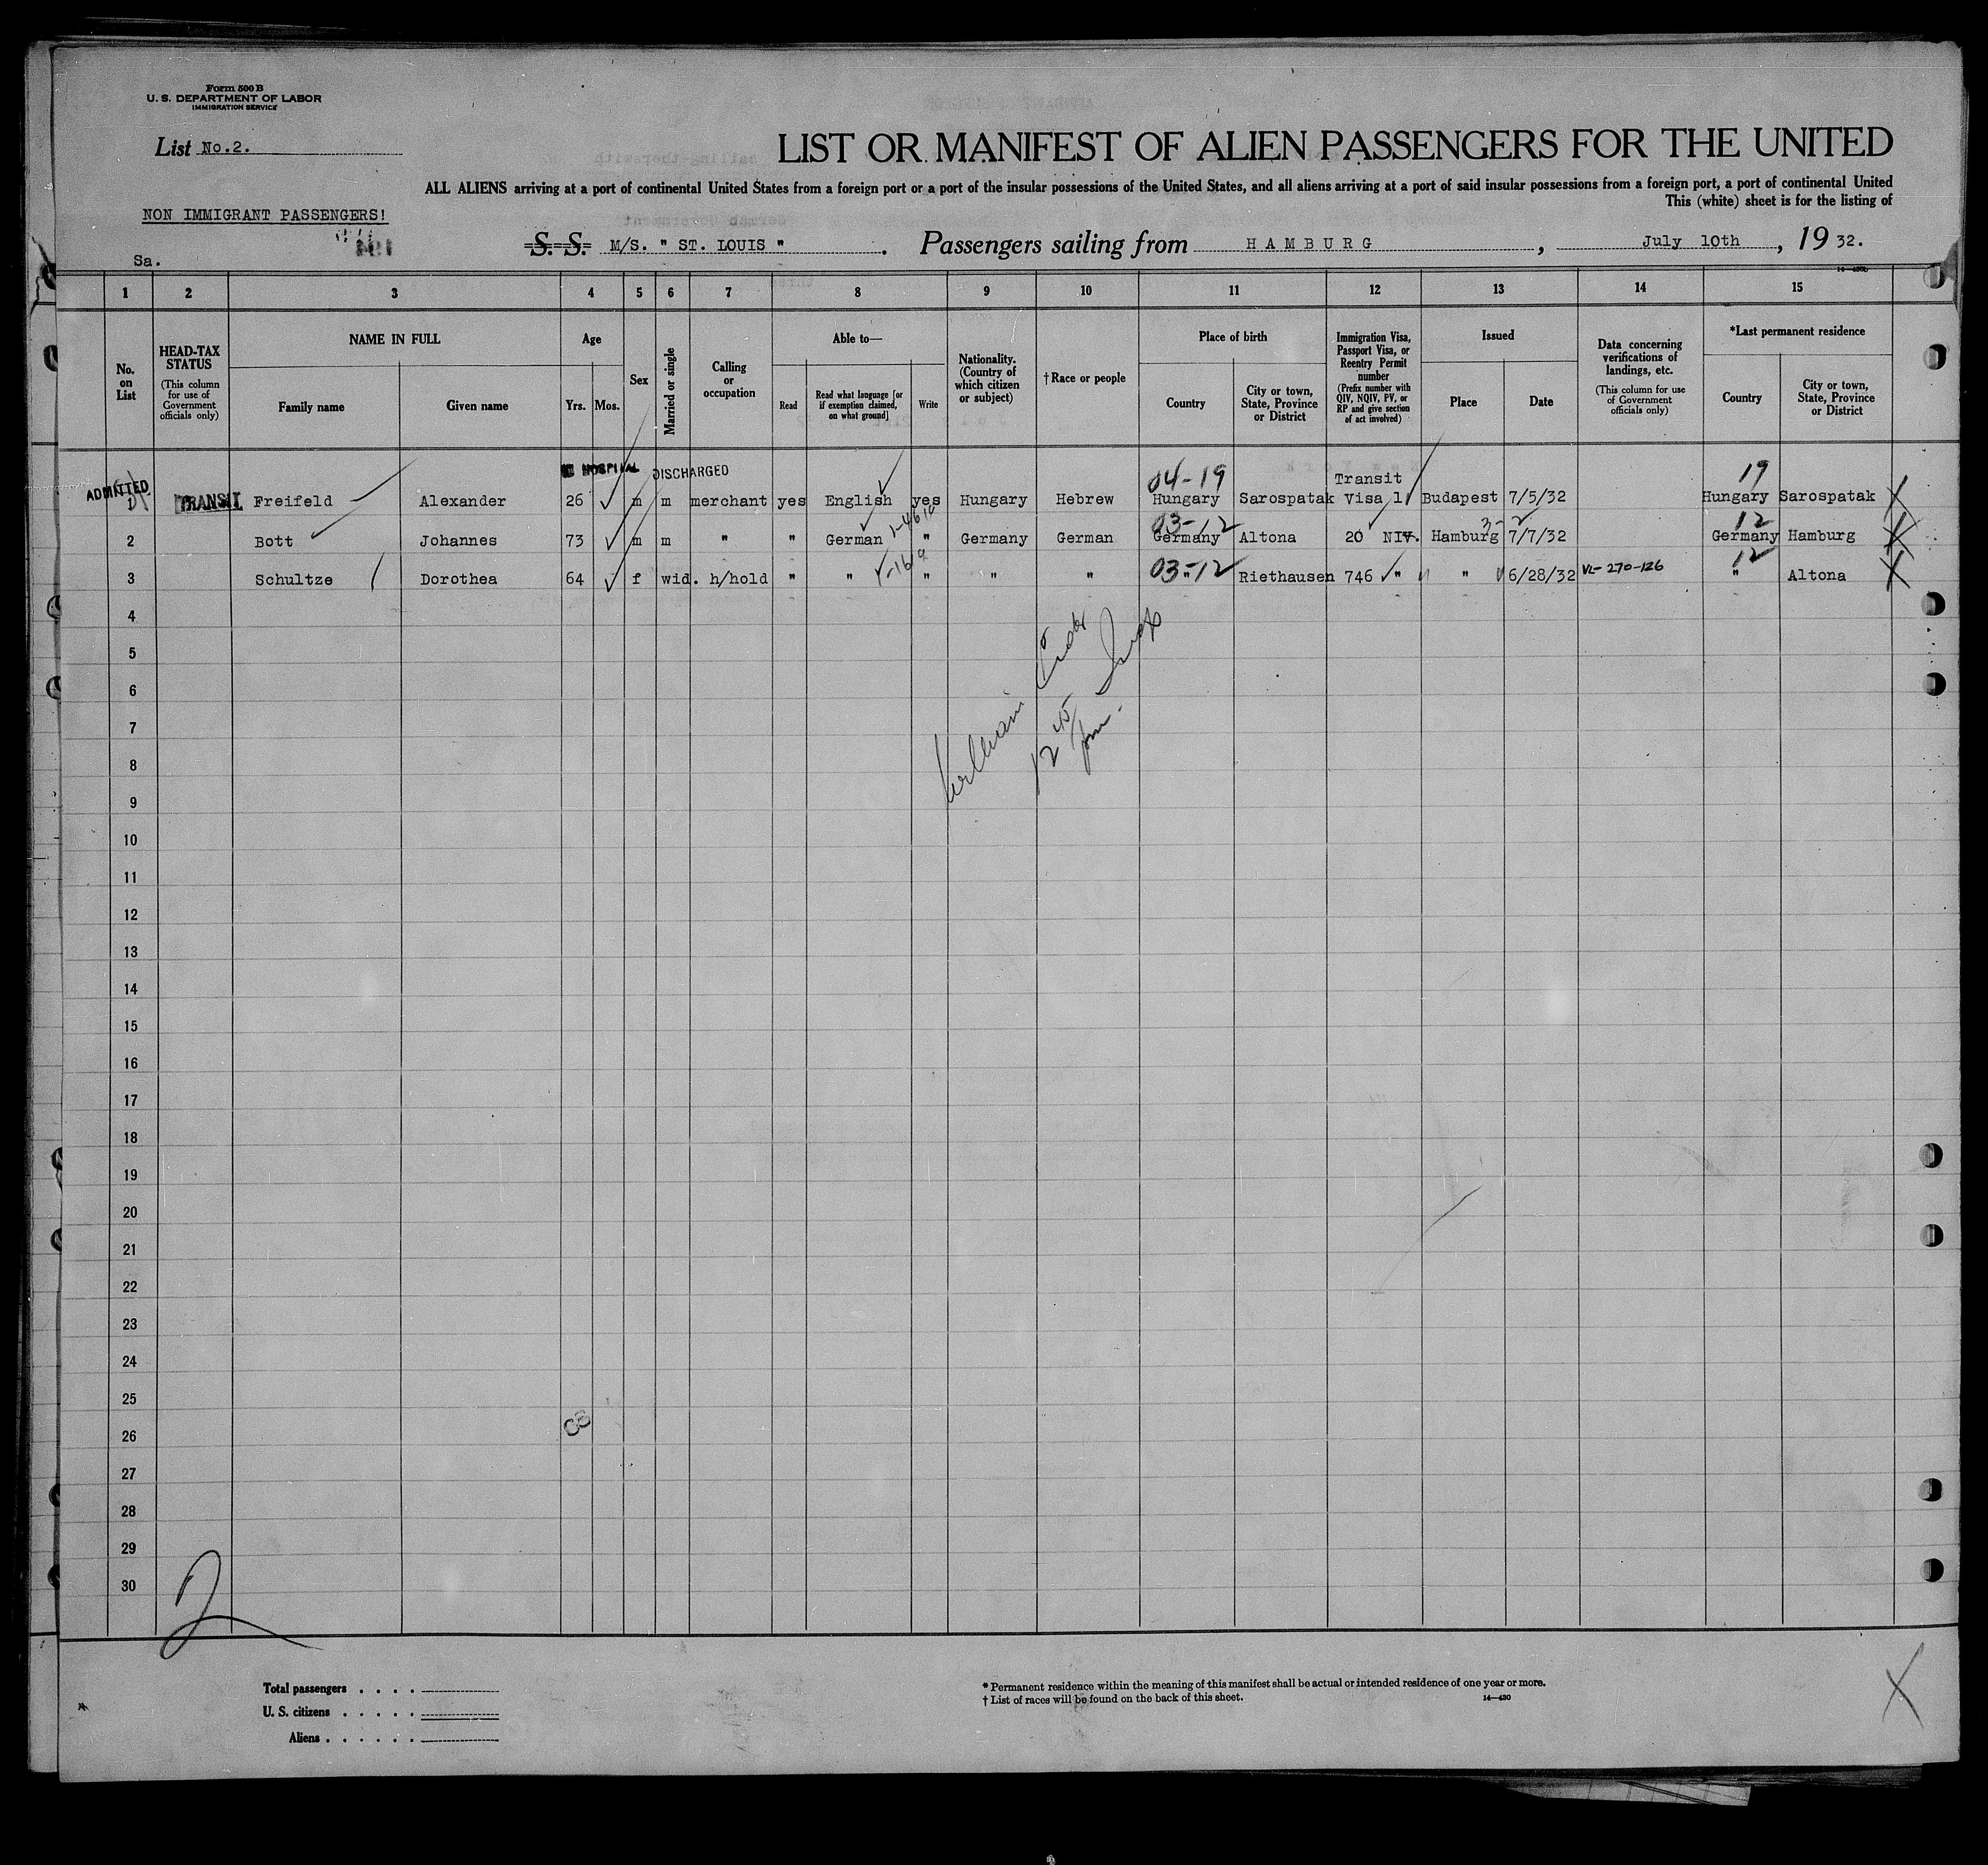 Form 500 B
U. S. DEPARTMENT OF LABOR
IMMIGRATION SERVICE
List No.2.
LIST OR MANIFEST OF ALIEN PASSENGERS FOR THE UNITED
ALL ALIENS arriving at a port of continental United States from a foreign port or a port of the insular possessions of the United States, and all aliens arriving at a port of said insular possessions from a foreign port, a port of continental United
This (white) sheet is for the listing of
NON IMMIGRANT PASSENGERS!
S. S. M/S. " ST. LOUIS ". Passengers sailing from HAMBURG, July 10th, 19 32.
Sa.
1 2 3 4 5 6 7 8 9 10 11 12 13 14 15
No. on List
HEAD-TAX STATUS (This column for use of Government officials only)
NAME IN FULL
Family name
Given name
Age
Yrs. Mos.
Sex
Married or single
Calling or occupation
Able to—
Read
Read what language [or if exemption claimed, on what ground]
Write
Nationality. (Country of which citizen or subject)
† Race or people
Place of birth
Country
City or town, State, Province or District
Immigration Visa, Passport Visa, or Reentry Permit number (Prefix number with QIV, NQIV, PV, or RP and give section of act involved)
Issued
Place
Date
Data concerning verifications of landings, etc. (This column for use of Government officials only)
*Last permanent residence
Country
City or town, State, Province or District
HOSPITAL DISCHARGED
04-19 Transit 19
ADMITTED 1 TRANSIT Freifeld Alexander 26 m m merchant yes English yes Hungary Hebrew Hungary Sarospatak Visa 1 Budapest 7/5/32 Hungary Sarospatak
03-12 3-2 12
2 Bott Johannes 73 m m " " German " Germany German Germany Altona 20 NIV. Hamburg 7/7/32 Germany Hamburg
03-12 12
3 Schultze Dorothea 64 f wid. h/hold " " " " " " Riethausen 746 " " 6/28/32 VL-270-126 " Altona
4
5
6
7
8
9
10
11
12
13
14
15
16
17
18
19
20
21
22
23
24
25
26
27
28
29
30
2
Total passengers . . . .
U. S. citizens . . . . .
Aliens . . . . . .
* Permanent residence within the meaning of this manifest shall be actual or intended residence of one year or more.
† List of races will be found on the back of this sheet.
14—430